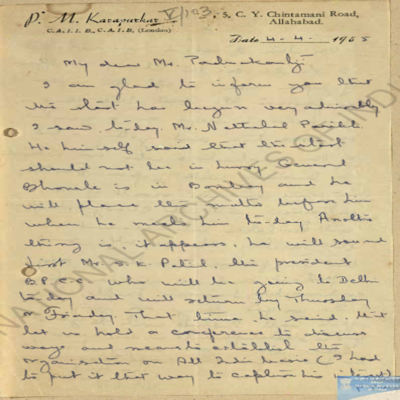 P. M. Kavaparkar
C.A.I.I.B., C.A.I.B. (London)
V/103
5, C. Y. Chintamani Road,
Allahabad.
Date 4-4-1965
My dear Mr.
I am glad to inform you that
the start has begun very admirably
I saw to-day Mr. Nattulal Parikh
He himself said that the start
should not be in hurry. General
Bhonsle is in Bombay and he
will place the matter before him
when he meets him to-day. Another
thing is it appears, he will sound
first Mr. S. K. Patil, the president
B.P.C.C. who will be going to Delhi
to-day and will return by Thursday
or Friday. That time he said, that
let us hold a conference to discuss
ways and means to establish the
organisation on All India basis (I had
to put it that way to capture his mind)
NATIONAL ARCHIVES OF INDIA